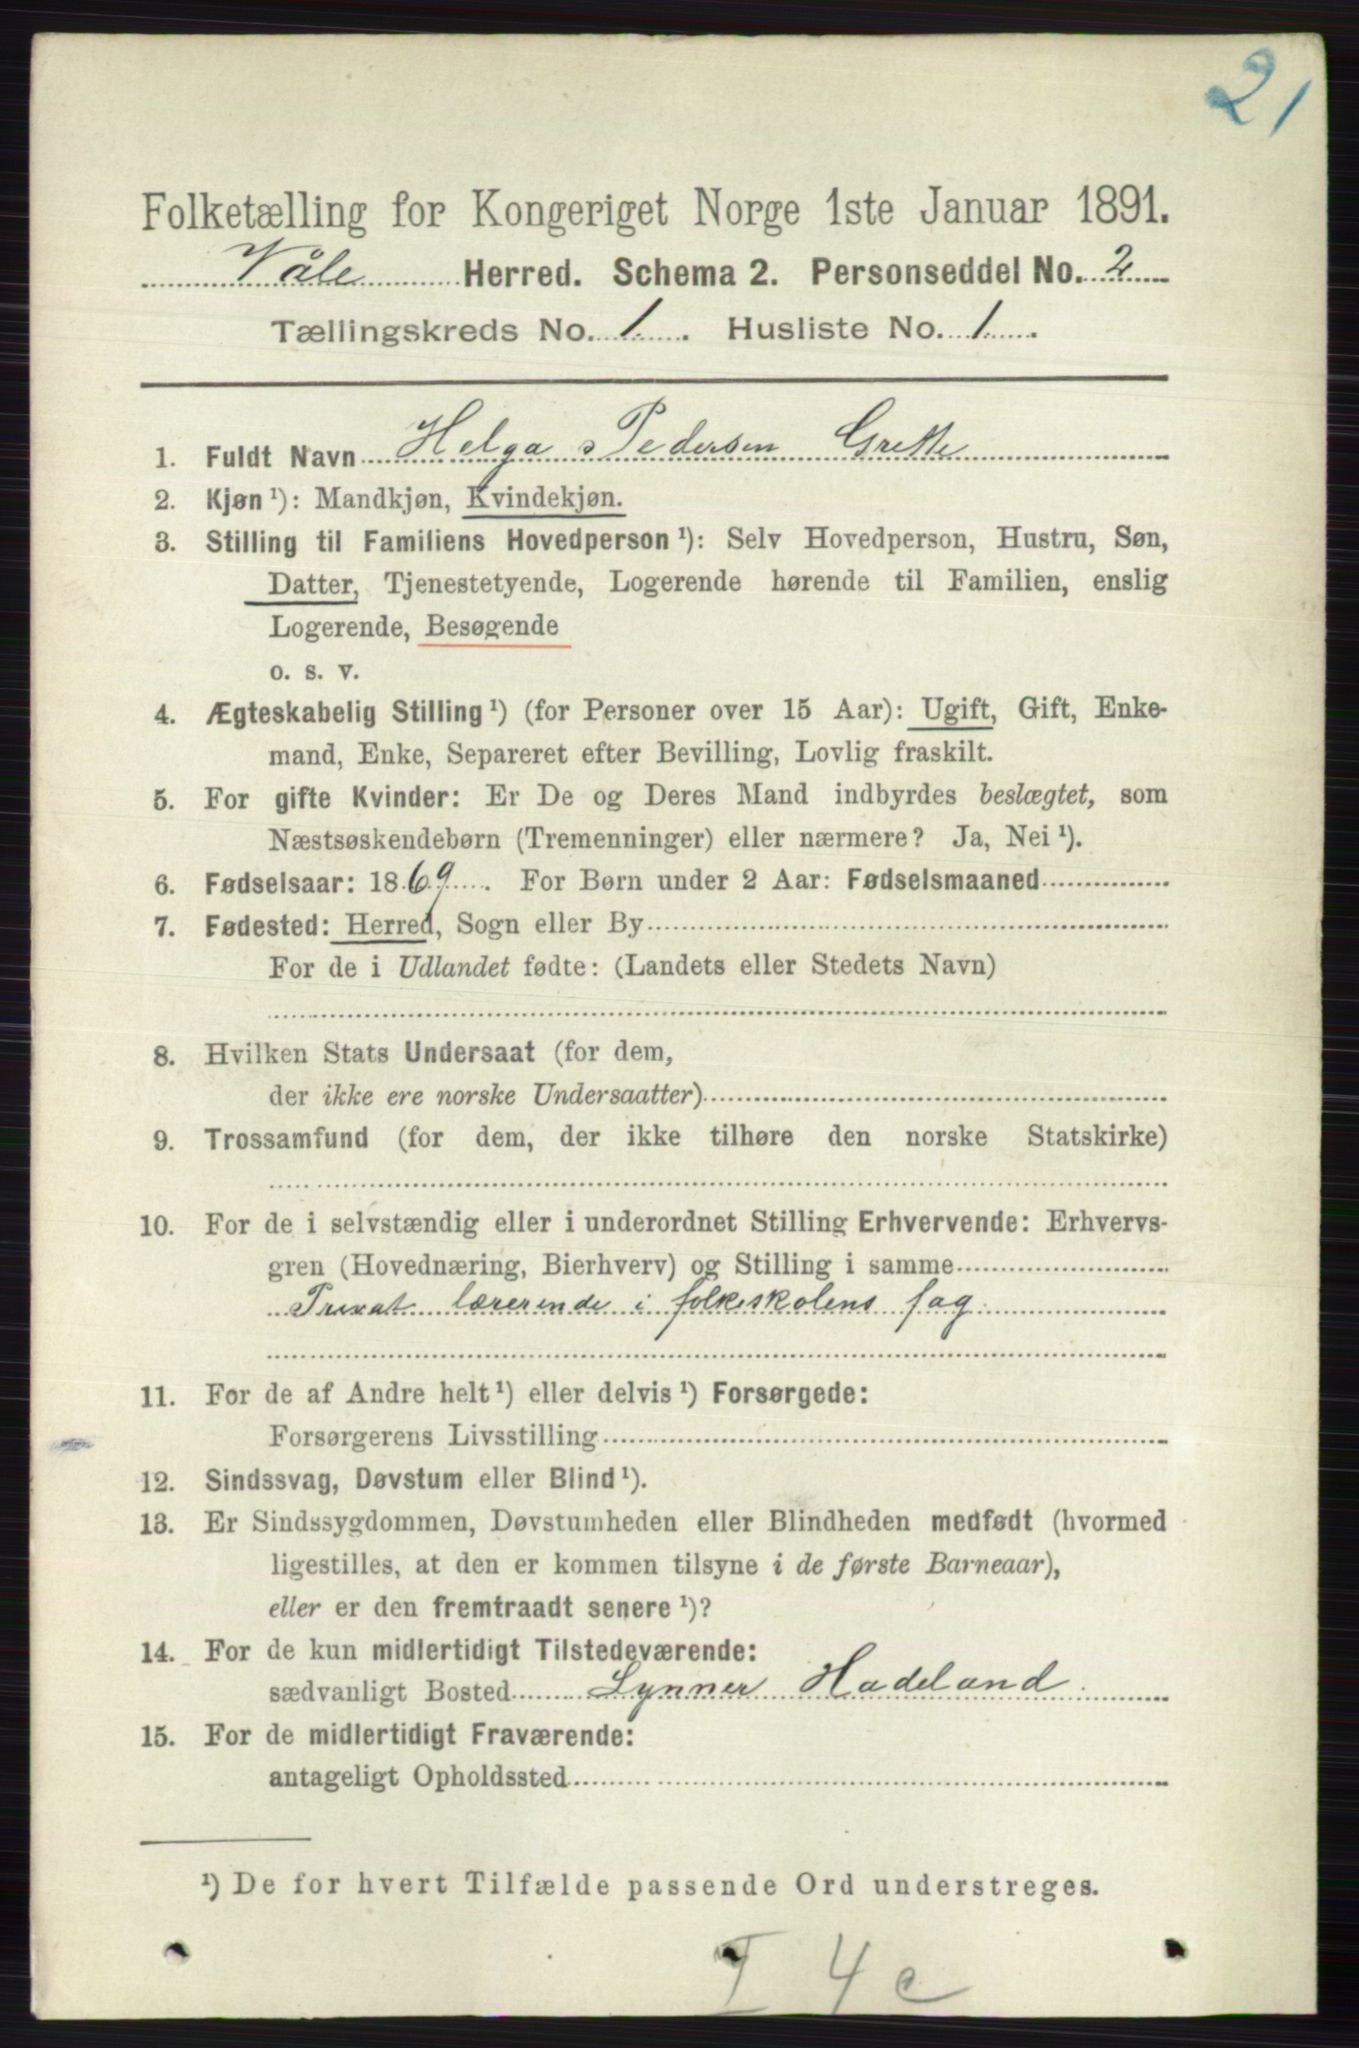 21
Folketælling for Kongeriget Norge 1ste Januar 1891.
Våle Herred. Schema 2. Personseddel No. 2
Tællingskreds No. 1. Husliste No. 1.
1. Fuldt Navn Helga Pedersen Grette
2. Kjøn ¹): Mandkjøn, Kvindekjøn.
3. Stilling til Familiens Hovedperson ¹): Selv Hovedperson, Hustru, Søn,
Datter, Tjenestetyende, Logerende hørende til Familien, enslig
Logerende, Besøgende
o. s. v.
4. Ægteskabelig Stilling ¹) (for Personer over 15 Aar): Ugift, Gift, Enke-
mand, Enke, Separeret efter Bevilling, Lovlig fraskilt.
5. For gifte Kvinder: Er De og Deres Mand indbyrdes beslægtet, som
Næstsøskendebørn (Tremenninger) eller nærmere? Ja, Nei ¹).
6. Fødselsaar: 1869. For Børn under 2 Aar: Fødselsmaaned
7. Fødested: Herred, Sogn eller By
For de i Udlandet fødte: (Landets eller Stedets Navn)
8. Hvilken Stats Undersaat (for dem,
der ikke ere norske Undersaatter)
9. Trossamfund (for dem, der ikke tilhøre den norske Statskirke)
10. For de i selvstændig eller i underordnet Stilling Erhvervende: Erhvervs-
gren (Hovednæring, Bierhverv) og Stilling i samme
Privat lærerinde i folkeskolens fag.
11. For de af Andre helt ¹) eller delvis ¹) Forsørgede:
Forsørgerens Livsstilling
12. Sindssvag, Døvstum eller Blind ¹).
13. Er Sindssygdommen, Døvstumheden eller Blindheden medfødt (hvormed
ligestilles, at den er kommen tilsyne i de første Barneaar),
eller er den fremtraadt senere ¹)?
14. For de kun midlertidigt Tilstedeværende:
sædvanligt Bosted Lynner Hadeland.
15. For de midlertidigt Fraværende:
antageligt Opholdssted
¹) De for hvert Tilfælde passende Ord understreges.
I 4 c